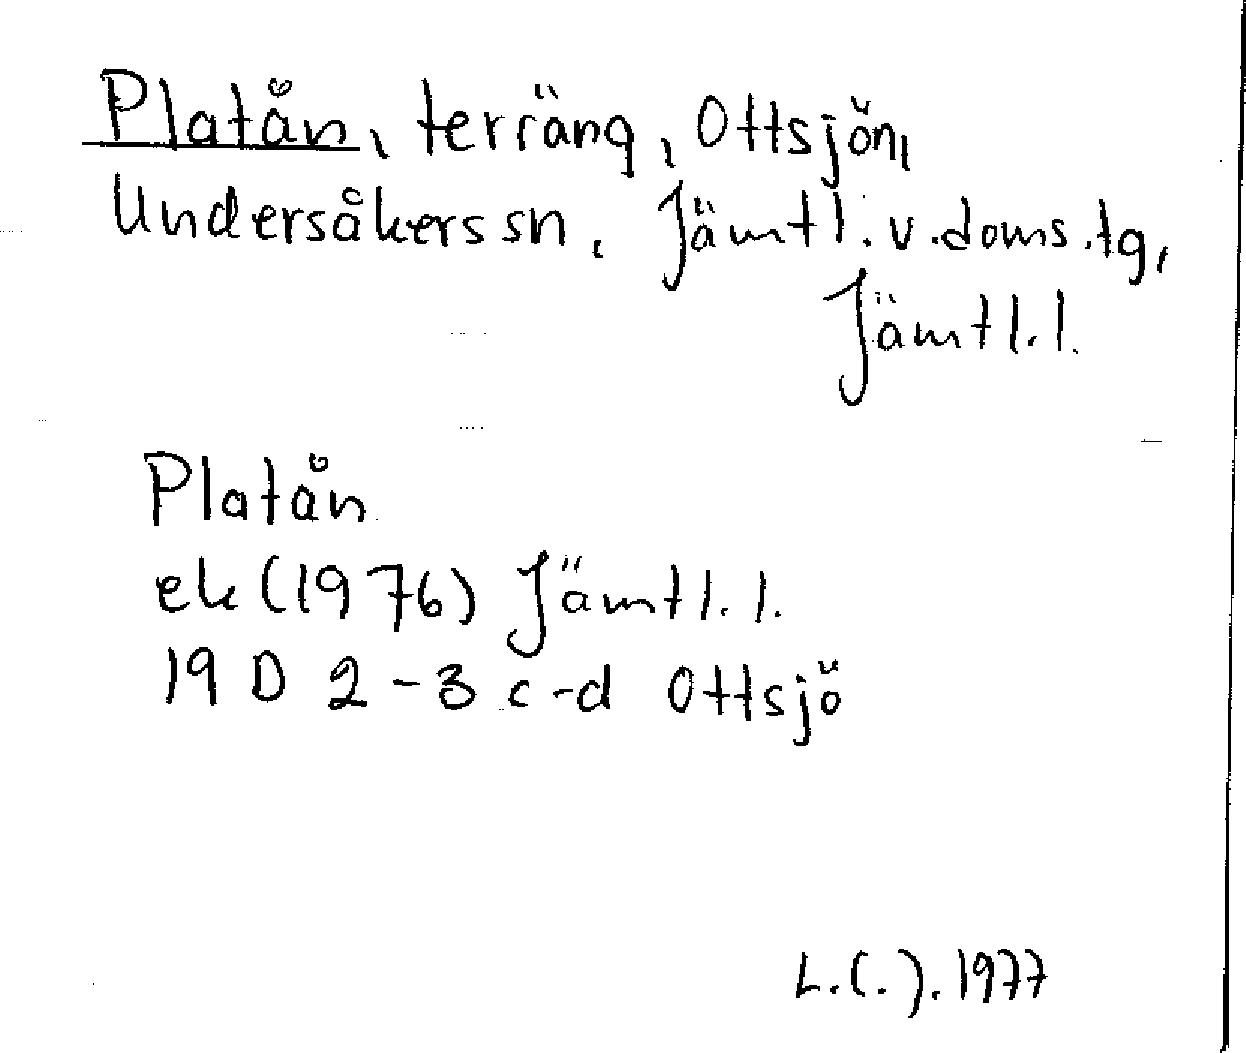 Platån, terräng, Ottsjön,
Undersåkers sn, Jämtl. v. doms. tg,
Jämtl. l.
Platån
ek (1976) Jämtl. l.
19 D 2-3 c-d Ottsjö
L.(.). 1977